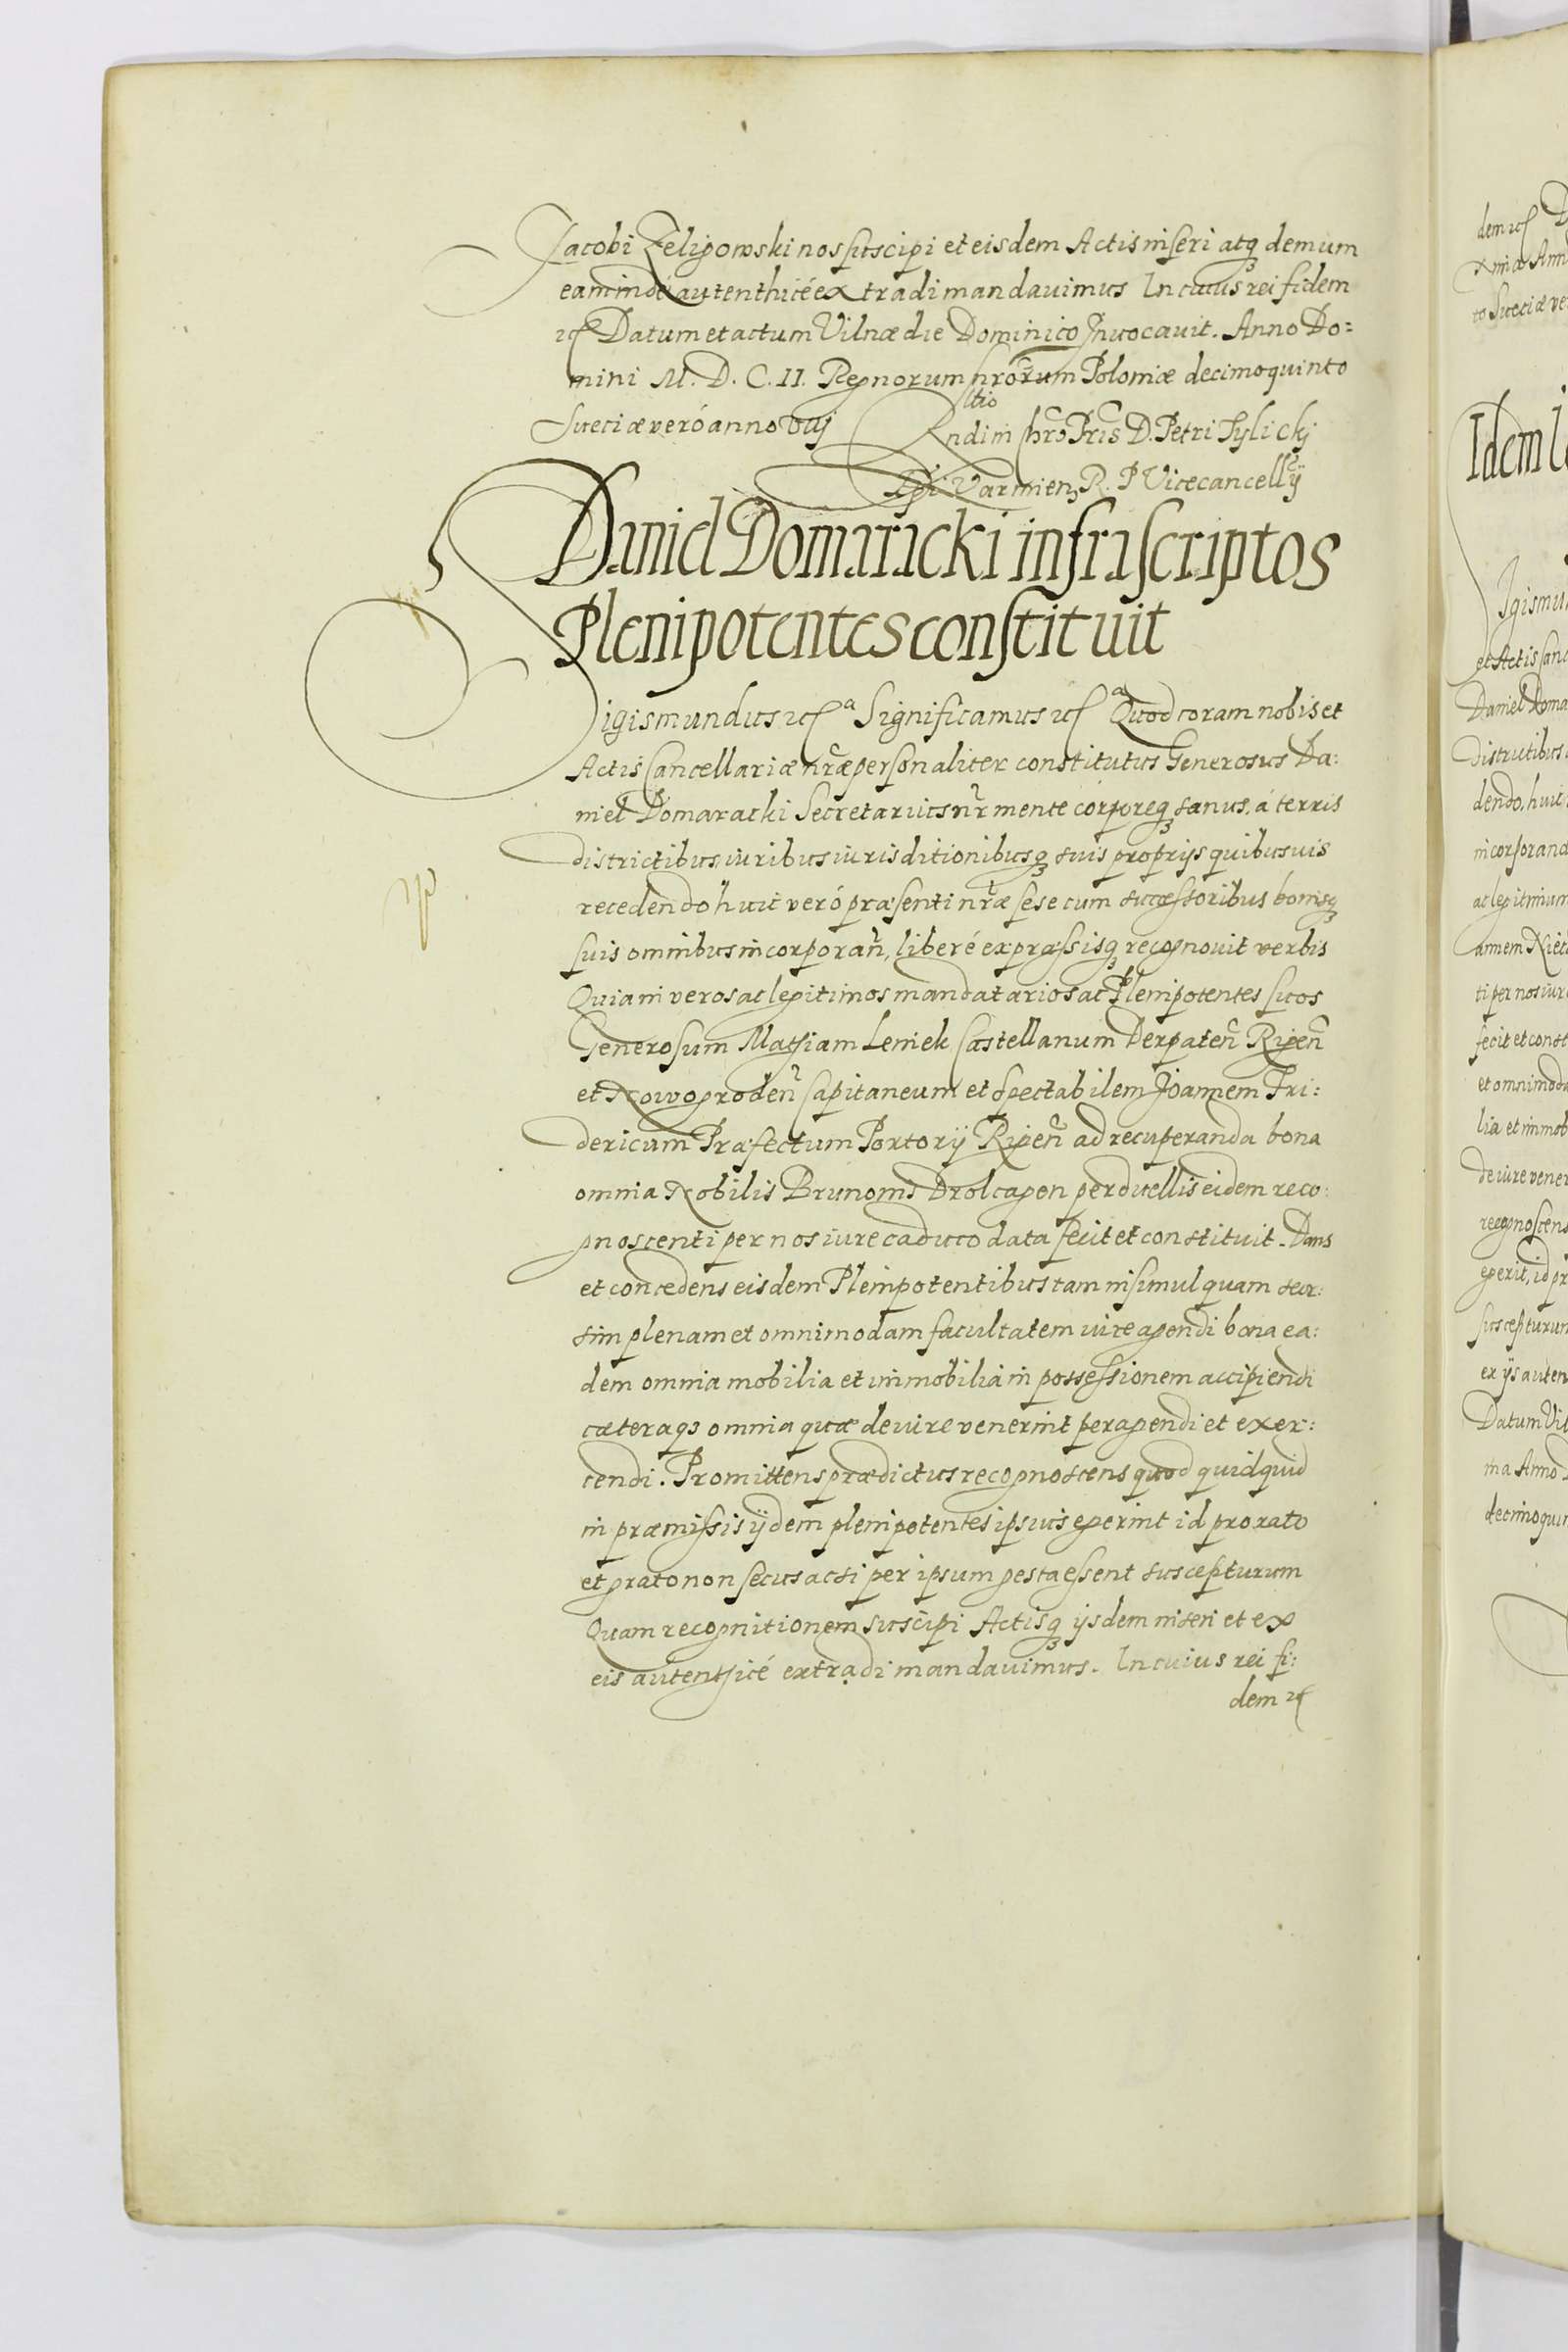 Jacobi Zeligowski nos suscipi et eisdem Actis inseri atq demum
eam indé autenthicé extradi mandauimus In cuius rei fidem
Datum et actum Vilnæ die Dominico Inuocauit. Anno Do=
mini M. D. C. II. Regnorum nrorum Poloniæ decimoquinto
Sueciæ veró anno viij Rndi in Chro Pris D. Petri Tylickj
Epi Varmien R. P Vicecancellrij
Daniel Domaracki infrascriptos
Plenipotentes constituit
Sigismundus Significamus Quod coram nobis et
Actis Cancellariæ nræ personaliter constitutus Generosus Da:
niel Domaracki Secretarius nr mente corporeq sanus, á terris
districtibus iuribus iurisditionibusq suis proprijs quibusuis
recedendo huic veró præsenti nræ sese cum successoribus bonisq
suis omnibus incorporan, liberé expræssisq recognouit verbis
Quia in veros ac legitimos mandatarios ac Plenipotentes suos
Generosum Mathiam Leniek Castellanum Derpaten Rigen
et Nowogroden Capitaneum et spectabilem Joannem Fri:
dericum Præfectum Portorij Rigen ad recuperanda bona
omnia Nobilis Brunonis Drolcagen perduellis eidem reco:
gnoscenti per nos iure caduco data fecit et constituit. Dans
et concedens eisdem Plenipotentibus tam insimul quam seor:
sim plenam et omnimodam facultatem iure agendi bona ea:
dem omnia mobilia et immobilia in possessionem accipiendi
cæteraq3 omnia quæ de iure venerint peragendi et exer:
cendi. Promittens prædictus recognoscens quod quidquid
in præmissis ijdem plenipotentes ipsius egerint id pro rato
et grato non secus ac si per ipsum gesta essent suscepturum
Quam recognitionem suscipi Actisq ijsdem inseri et ex
eis autenthicé extradi mandauimus. In cuius rei fi:
dem